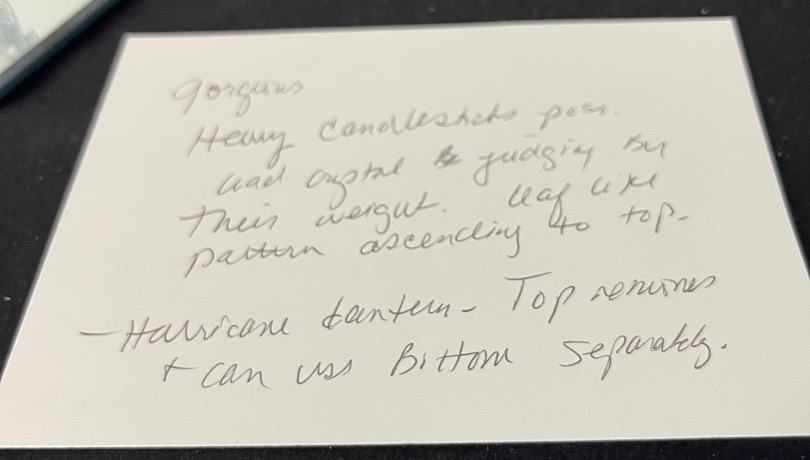 gorgeous
Heavy Candlesticks poss.
lead crystal judging by
their weight. leaf like
pattern ascending to top-
- Hurricane Lantern - Top removes
+ can use Bottom separately.